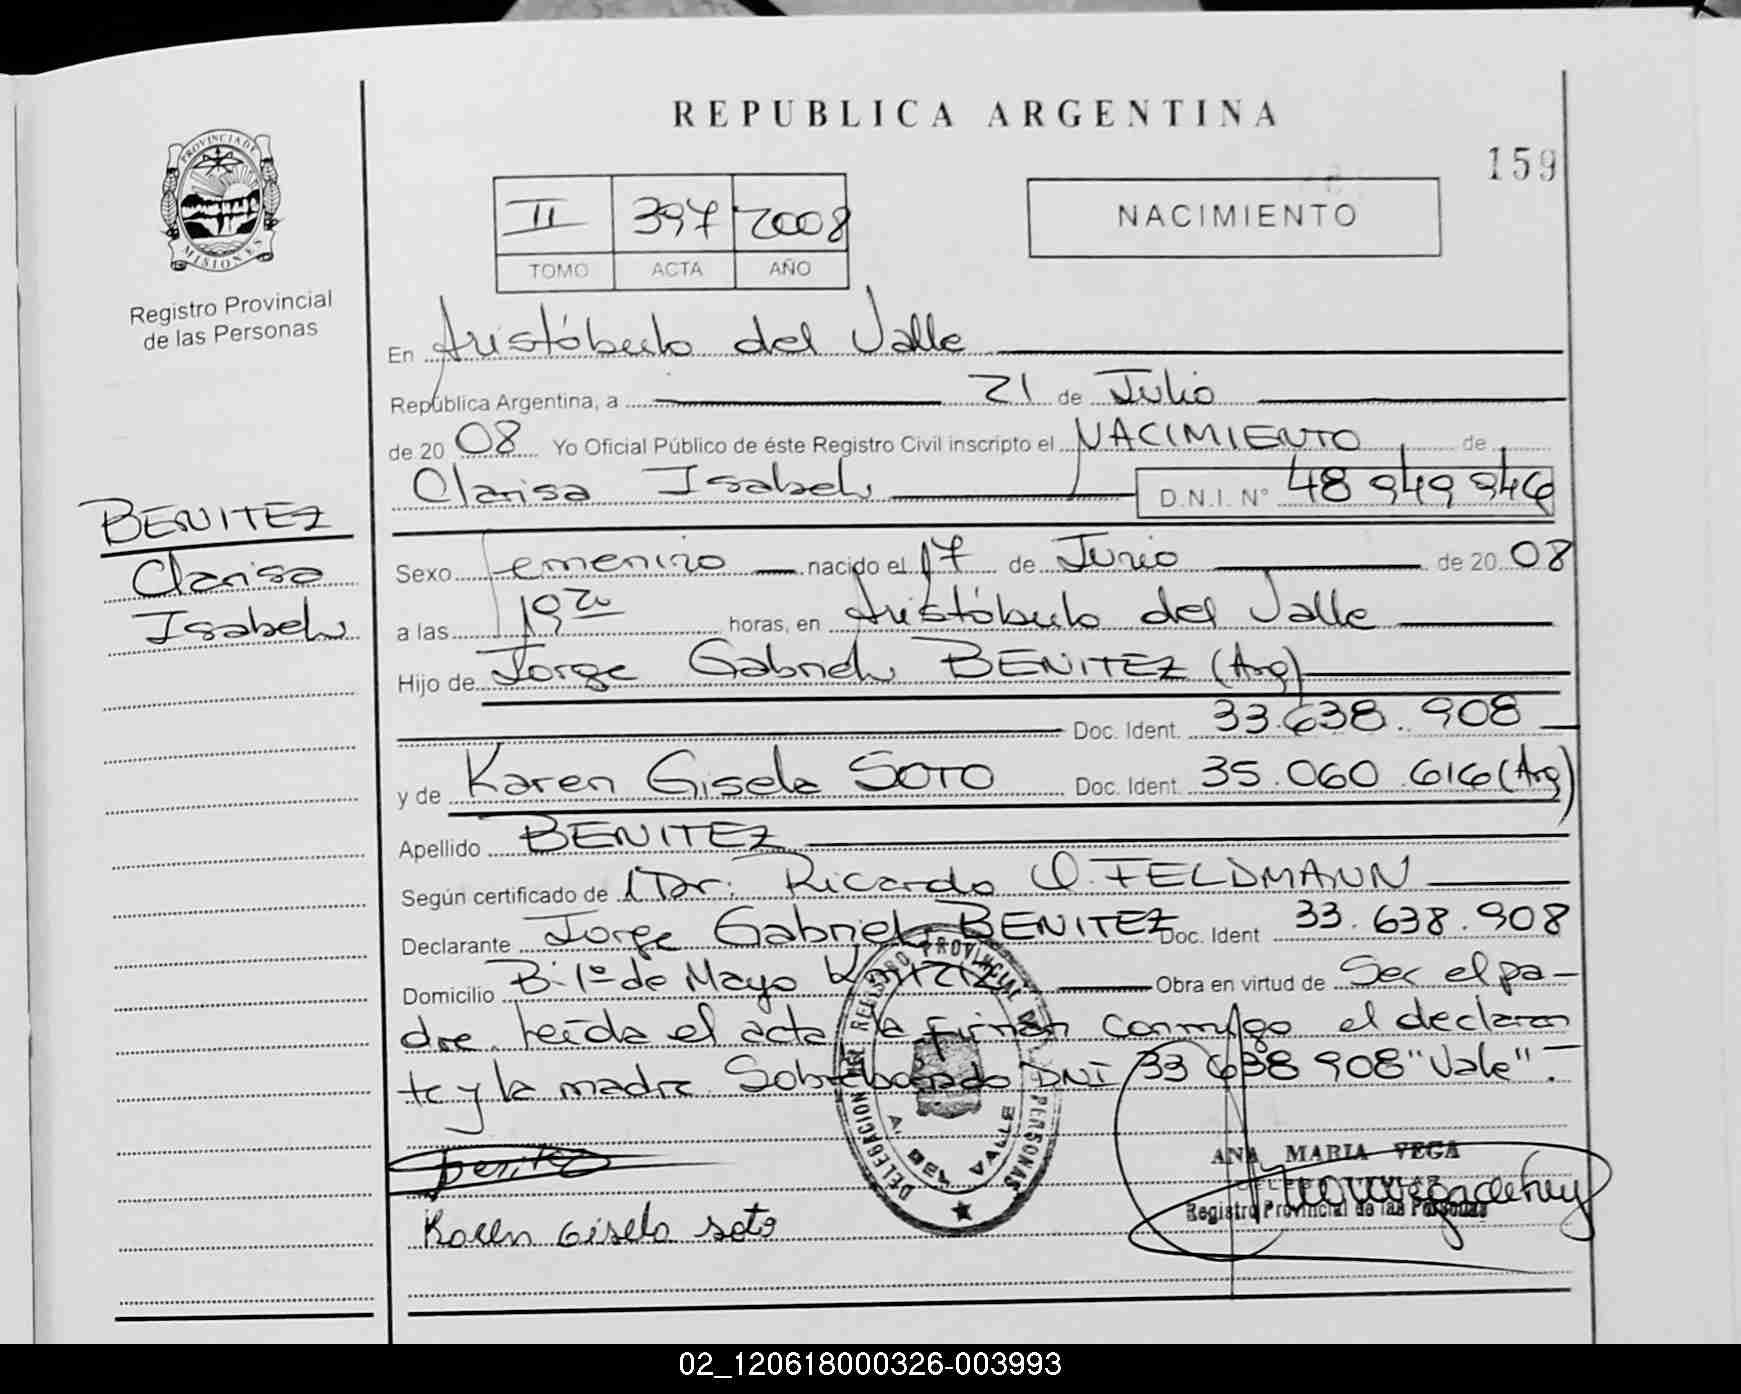 REPUBLICA ARGENTINA
159
PROVINCIA DE
MISIONES
Registro Provincial
de las Personas
II 397 2008
TOMO ACTA AÑO
NACIMIENTO
En Aristóbulo del Valle
República Argentina, a 21 de Julio
de 20 08 Yo Oficial Público de éste Registro Civil inscripto el NACIMIENTO de
Clarisa Isabel D.N.I. N° 48 949 946
BENITEZ
Clarisa
Isabel
Sexo femenino nacido el 17 de Junio de 20 08
a las 19 20 horas, en Aristóbulo del Valle
Hijo de Jorge Gabriel BENITEZ (Arg)
Doc. Ident. 33.638.908
y de Karen Gisela SOTO Doc. Ident. 35.060.616 (Arg)
Apellido BENITEZ
Según certificado de Dr. Ricardo O. FELDMANN
Declarante Jorge Gabriel BENITEZ Doc. Ident 33.638.908
Domicilio B. 1º de Mayo Obra en virtud de Ser el pa-
dre. Leída el acta la firman conmigo el declaran
te y la madre. Sobreborrado DNI 33 638 908 "Vale".-
DELEGACION DEL REGISTRO PROVINCIAL DE PERSONAS
benitez
Karen Gisela soto
ANA MARIA VEGA
Registro Provincial de las Personas
02_120618000326-003993